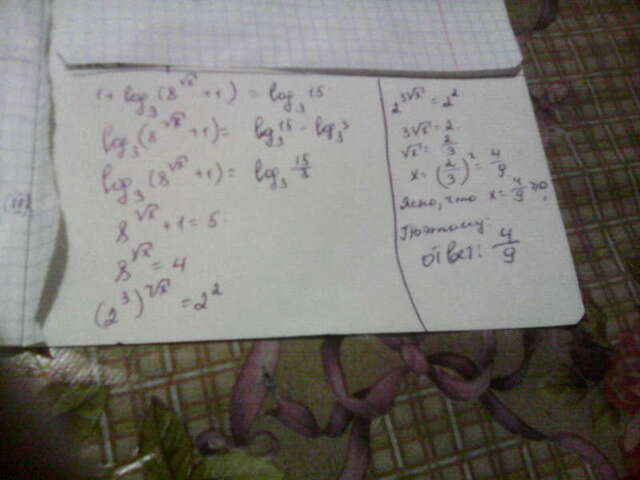 1 + log₃(8^√x + 1) = log₃15
log₃(8^√x + 1) = log₃15 - log₃3
log₃(8^√x + 1) = log₃ 15/3
8^√x + 1 = 5
8^√x = 4
(2³)^√x = 2²
2^3√x = 2²
3√x = 2
√x = 2/3
x = (2/3)² = 4/9
Ясно, что x = 4/9 ≥ 0
Поэтому:
ответ: 4/9